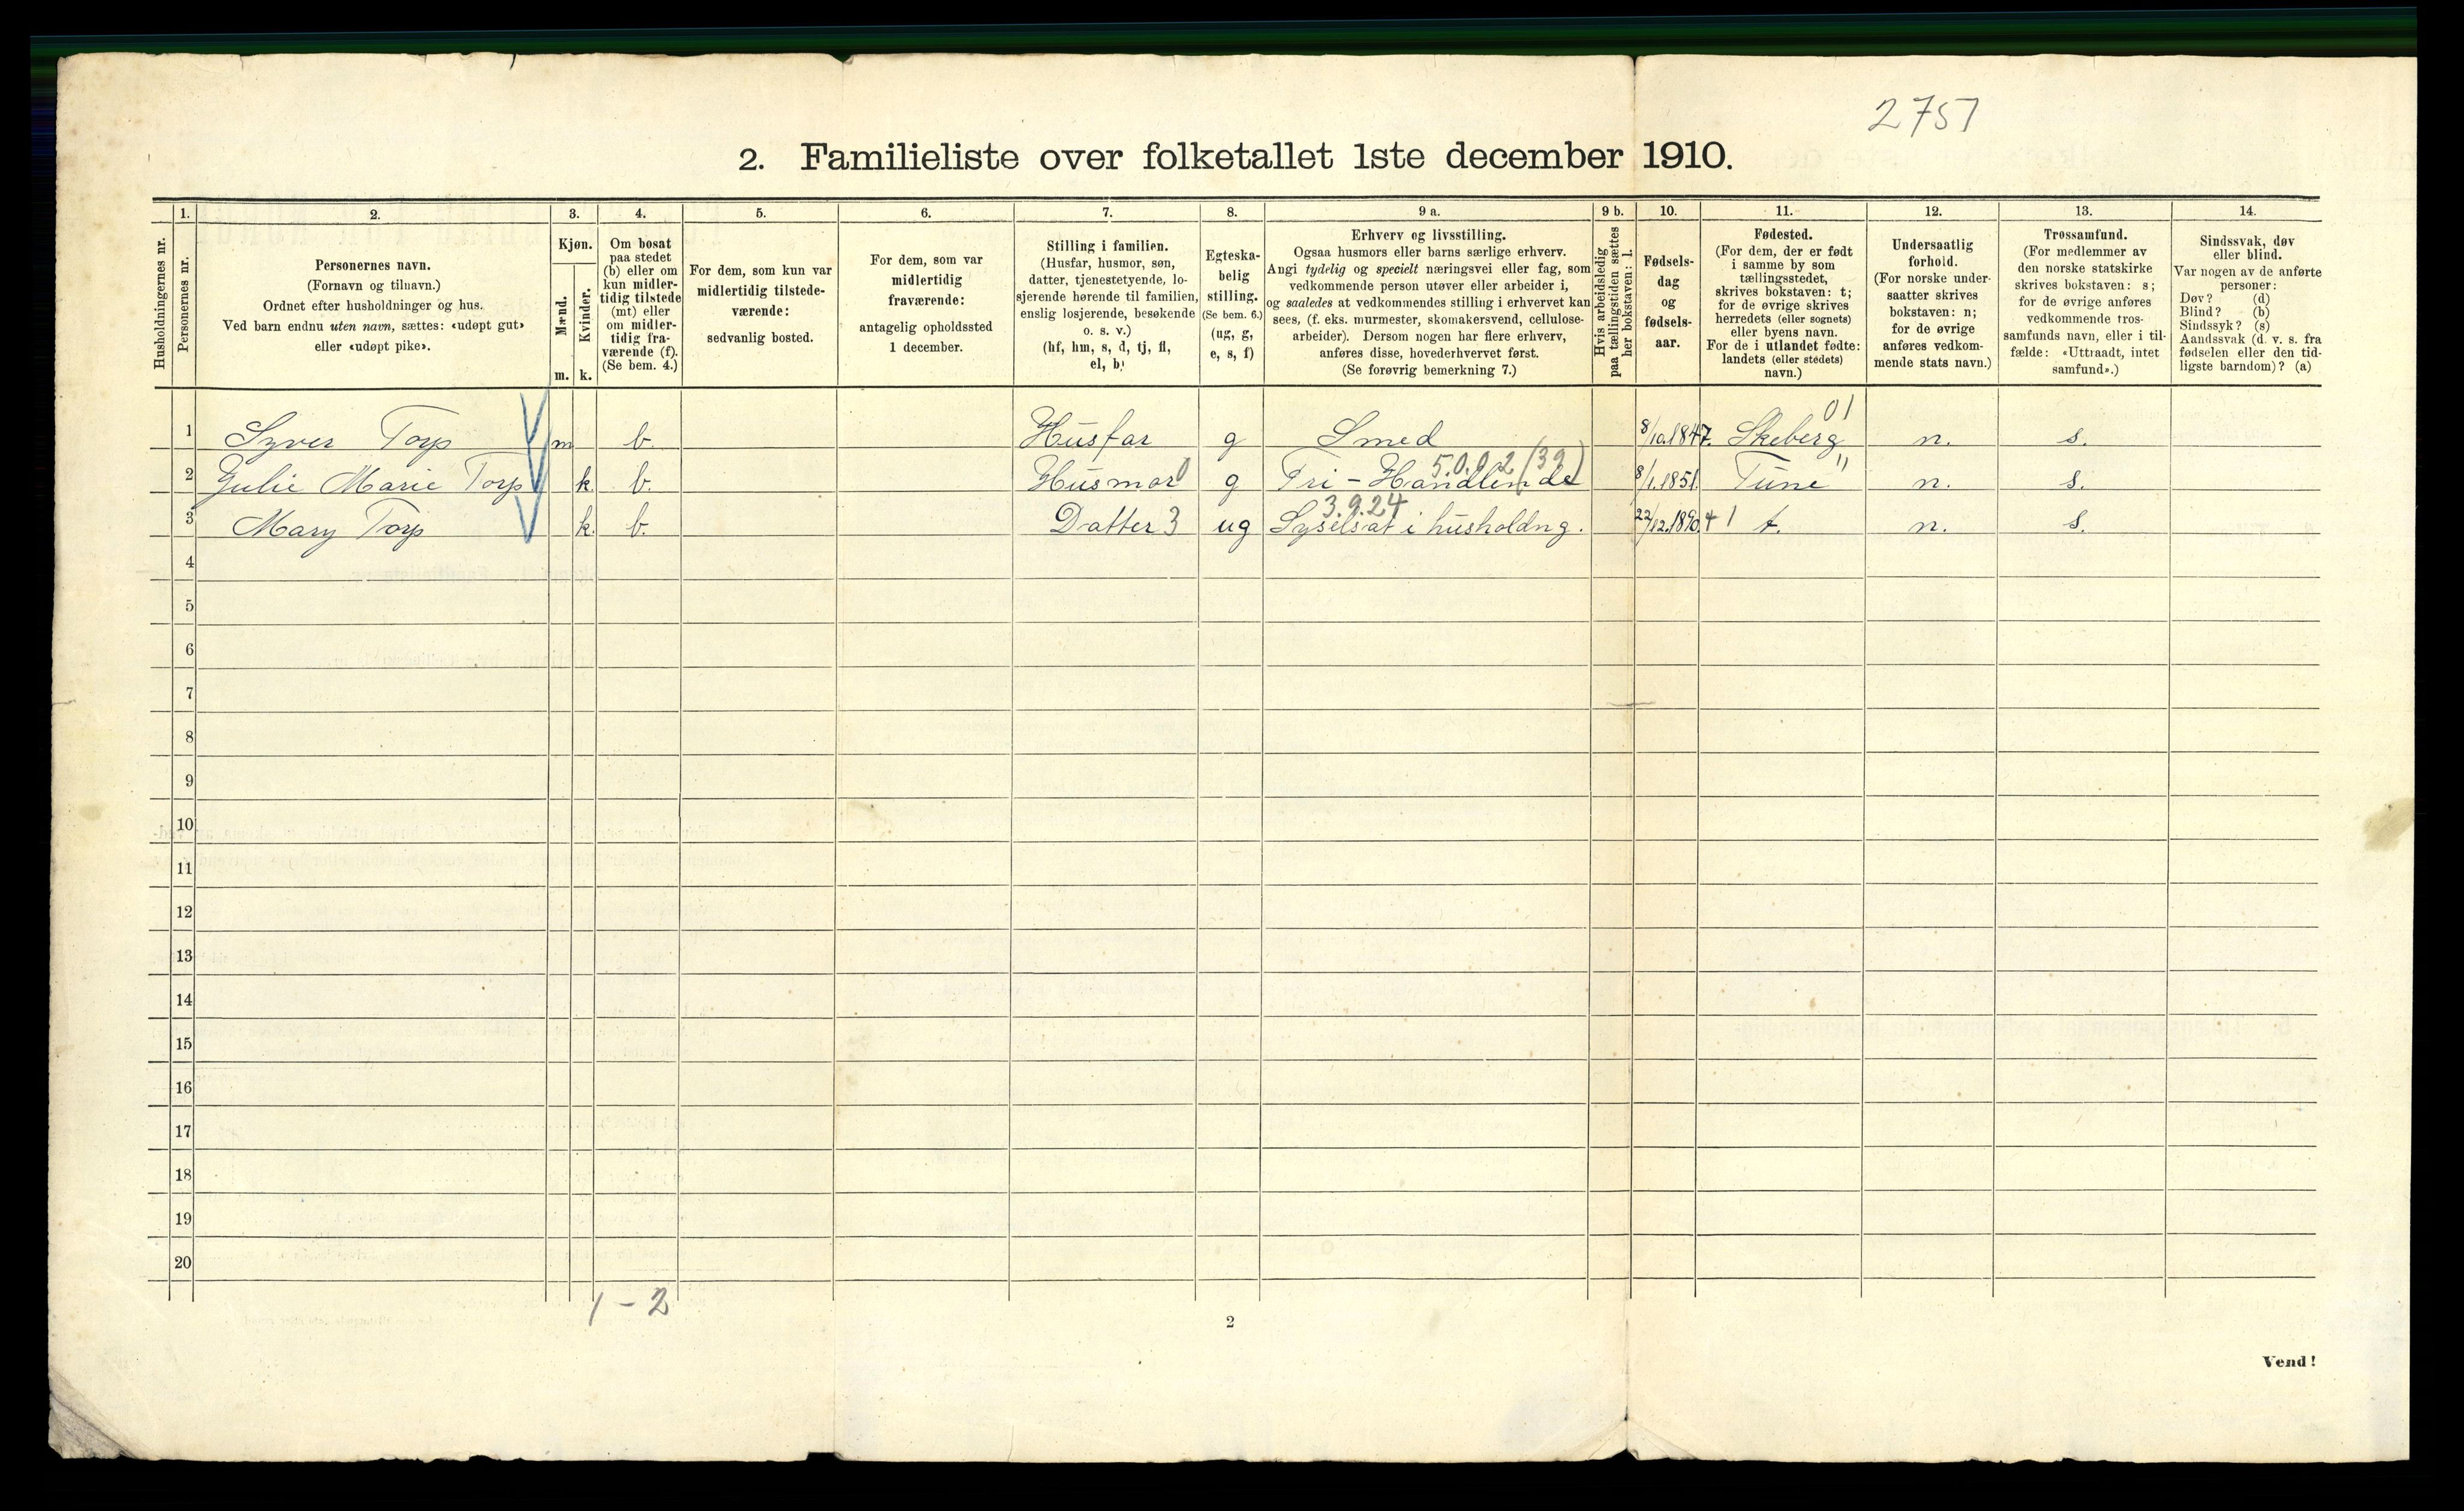 2757
2. Familieliste over folketallet 1ste december 1910.
Husholdningernes nr.
1.
Personernes nr.
2.
Personernes navn.
(Fornavn og tilnavn.)
Ordnet efter husholdninger og hus.
Ved barn endnu uten navn, sættes: «udøpt gut»
eller «udøpt pike».
3.
Kjøn.
Mænd.
Kvinder.
m. k.
4.
Om bosat
paa stedet
(b) eller om
kun midler-
tidig tilstede
(mt) eller
om midler-
tidig fra-
værende (f).
(Se bem. 4.)
5.
For dem, som kun var
midlertidig tilstede-
værende:
sedvanlig bosted.
6.
For dem, som var
midlertidig
fraværende:
antagelig opholdssted
1 december.
7.
Stilling i familien.
(Husfar, husmor, søn,
datter, tjenestetyende, lo-
sjerende hørende til familien,
enslig losjerende, besøkende
o. s. v.)
(hf, hm, s, d, tj, fl,
el, b)
8.
Egteska-
belig
stilling.
(Se bem. 6.)
(ug, g,
e, s, f)
9 a.
Erhverv og livsstilling.
Ogsaa husmors eller barns særlige erhverv.
Angi tydelig og specielt næringsvei eller fag, som
vedkommende person utøver eller arbeider i,
og saaledes at vedkommendes stilling i erhvervet kan
sees, (f. eks. murmester, skomakersvend, cellulose-
arbeider). Dersom nogen har flere erhverv,
anføres disse, hovederhvervet først.
(Se forøvrig bemerkning 7.)
9 b.
Hvis arbeidsledig
paa tællingstiden sættes
her bokstaven: l.
10.
Fødsels-
dag
og
fødsels-
aar.
11.
Fødested.
(For dem, der er født
i samme by som
tællingsstedet,
skrives bokstaven: t;
for de øvrige skrives
herredets (eller sognets)
eller byens navn.
For de i utlandet fødte:
landets (eller stedets)
navn.)
12.
Undersaatlig
forhold.
(For norske under-
saatter skrives
bokstaven: n;
for de øvrige
anføres vedkom-
mende stats navn.)
13.
Trossamfund.
(For medlemmer av
den norske statskirke
skrives bokstaven: s;
for de øvrige anføres
vedkommende tros-
samfunds navn, eller i til-
fælde: «Uttraadt, intet
samfund».)
14.
Sindssvak, døv
eller blind.
Var nogen av de anførte
personer:
Døv? (d)
Blind? (b)
Sindssyk? (s)
Aandssvak (d. v. s. fra
fødselen eller den tid-
ligste barndom)? (a)
01
1 Syver Torp m b. Husfar g Smed 8/10.1847. Skeberg n. s.
5.0.02 (39)
2 Julie Marie Torp k. b. Husmor 0 g Fri-Handlende 8/1.1851. Tune " n. s.
3.9.24
3 Mary Torp k. b. Datter 3 ug Syselsat i husholdng. 22/12.1890 +1 t. n. s.
4
5
6
7
8
9
10
11
12
13
14
15
16
17
18
19
20
1-2
2
Vend!